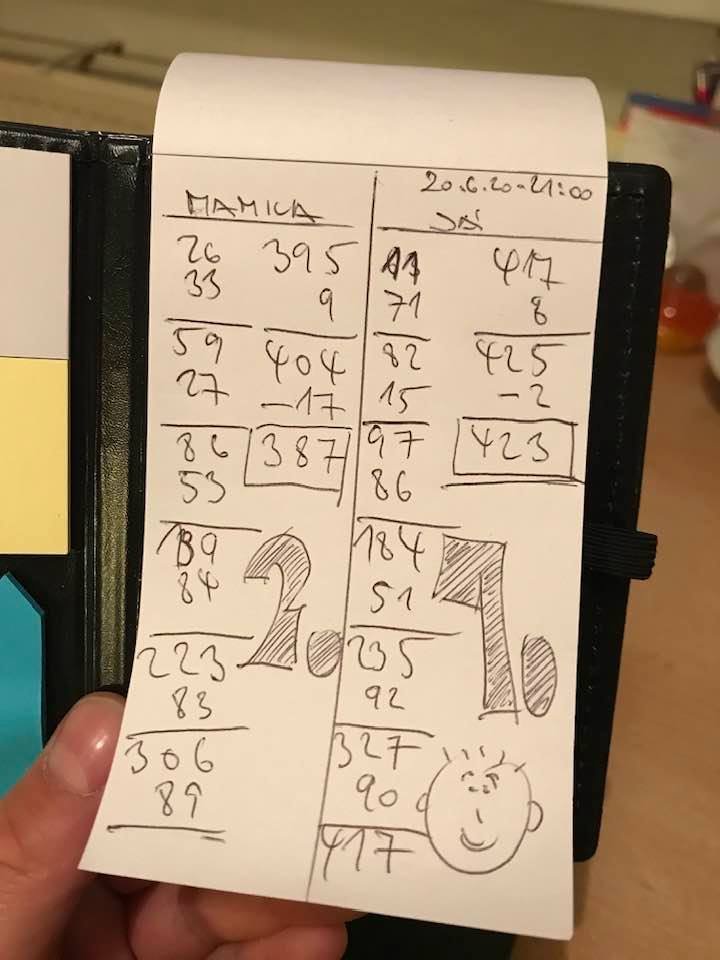 MAMICA
26
33
59
27
86
53
139
84
223
83
306
89
395
9
404
-17
387
2.
20.6.20-21:00
JÁ
11
71
82
15
97
86
184
51
235
92
327
90
417
417
8
425
-2
423
1.